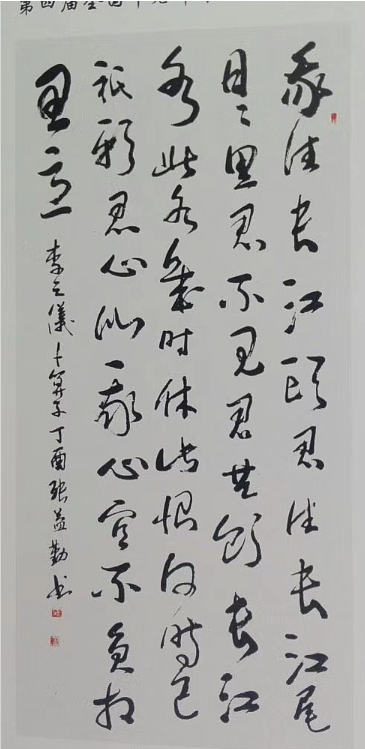 第四届全国
我住长江头君住长江尾
日々思君不见君共饮长江
水此水几时休此恨何时已
祇愿君心似我心定不负相
思意
李之儀卜算子丁酉张益勤书